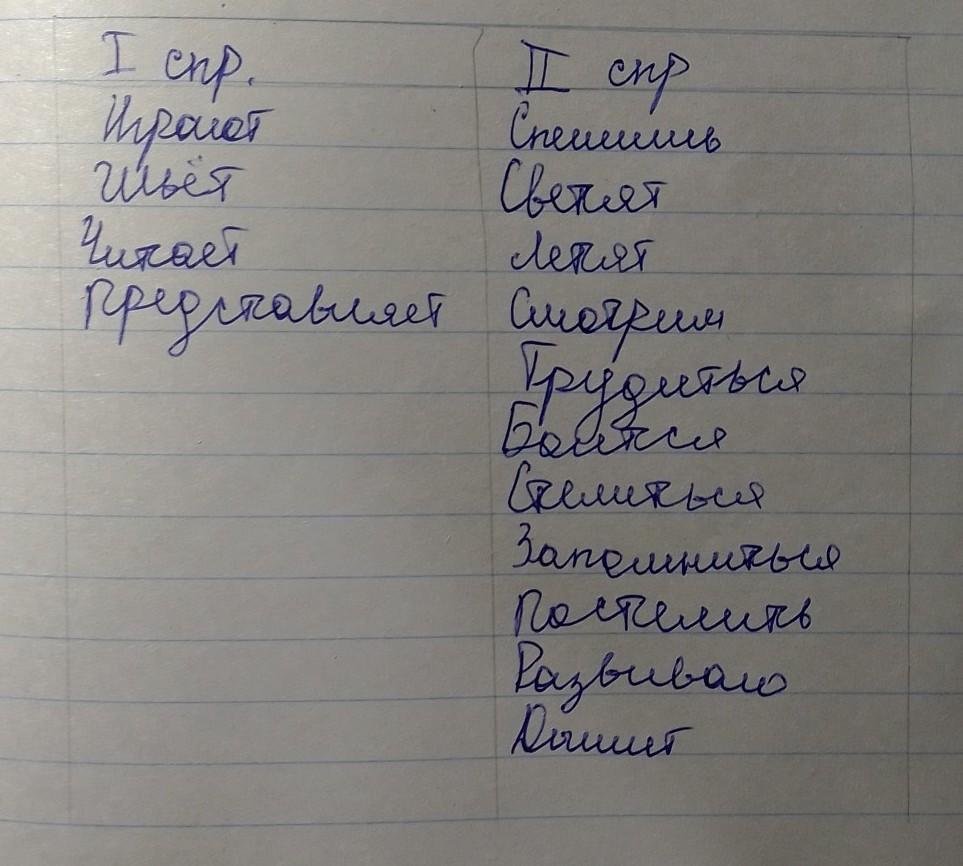 I спр.
Играют
Шьёт
Читает
Представляет
II спр
Спешишь
Светят
Летят
Смотрим
Трудиться
Боится
Стелиться
Запомниться
Постелить
Развиваю
Дышит